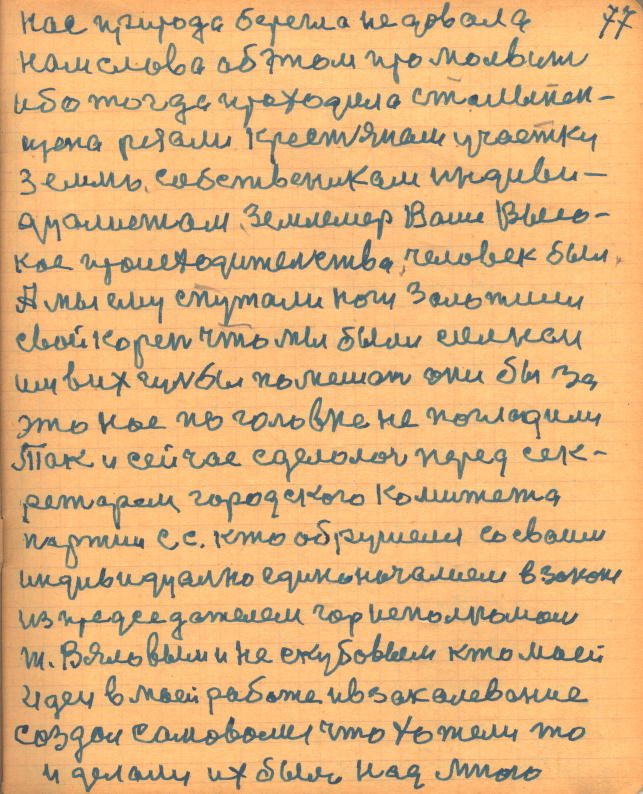 77
нас природа берегла не довала
нам слова об этом промолвит
ибо тогда проходила столыпен-
щена резали крестянам участки
земль. собственикам индиви-
дуалистам. Землемер Ваше Высо-
кое происходителства, человек был,
А мы ему спутали ноги Заложили
свой корен что мы были
их гул был помешат они бы за
это нас по головке не погладили
Так и сейчас сделолос перед сек-
ретарем городского Комитета
партии с.с. кто обрушелся со своим
индивидуално единоначалием в закон
из председателем горисполкомам
т. Вяловым и не скубовым кто моей
идеи в моей работе
создал самоволия что хотели то
и делали их было над мною